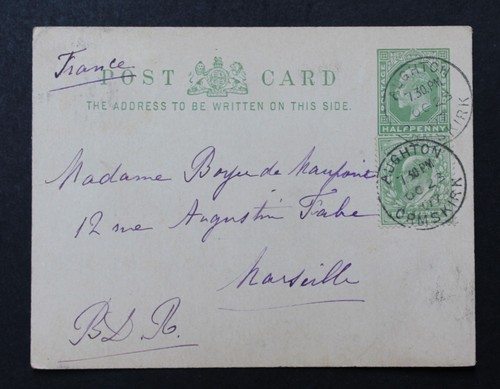 France
POST CARD
THE ADDRESS TO BE WRITTEN ON THIS SIDE.
HALFPENNY
AUGHTON
7.30 PM
ORMSKIRK
AUGHTON
7.30 PM
OC 2
ORMSKIRK
Madame Boyer de
12 rue Augustin Fabre
Marseille
B.D.R.